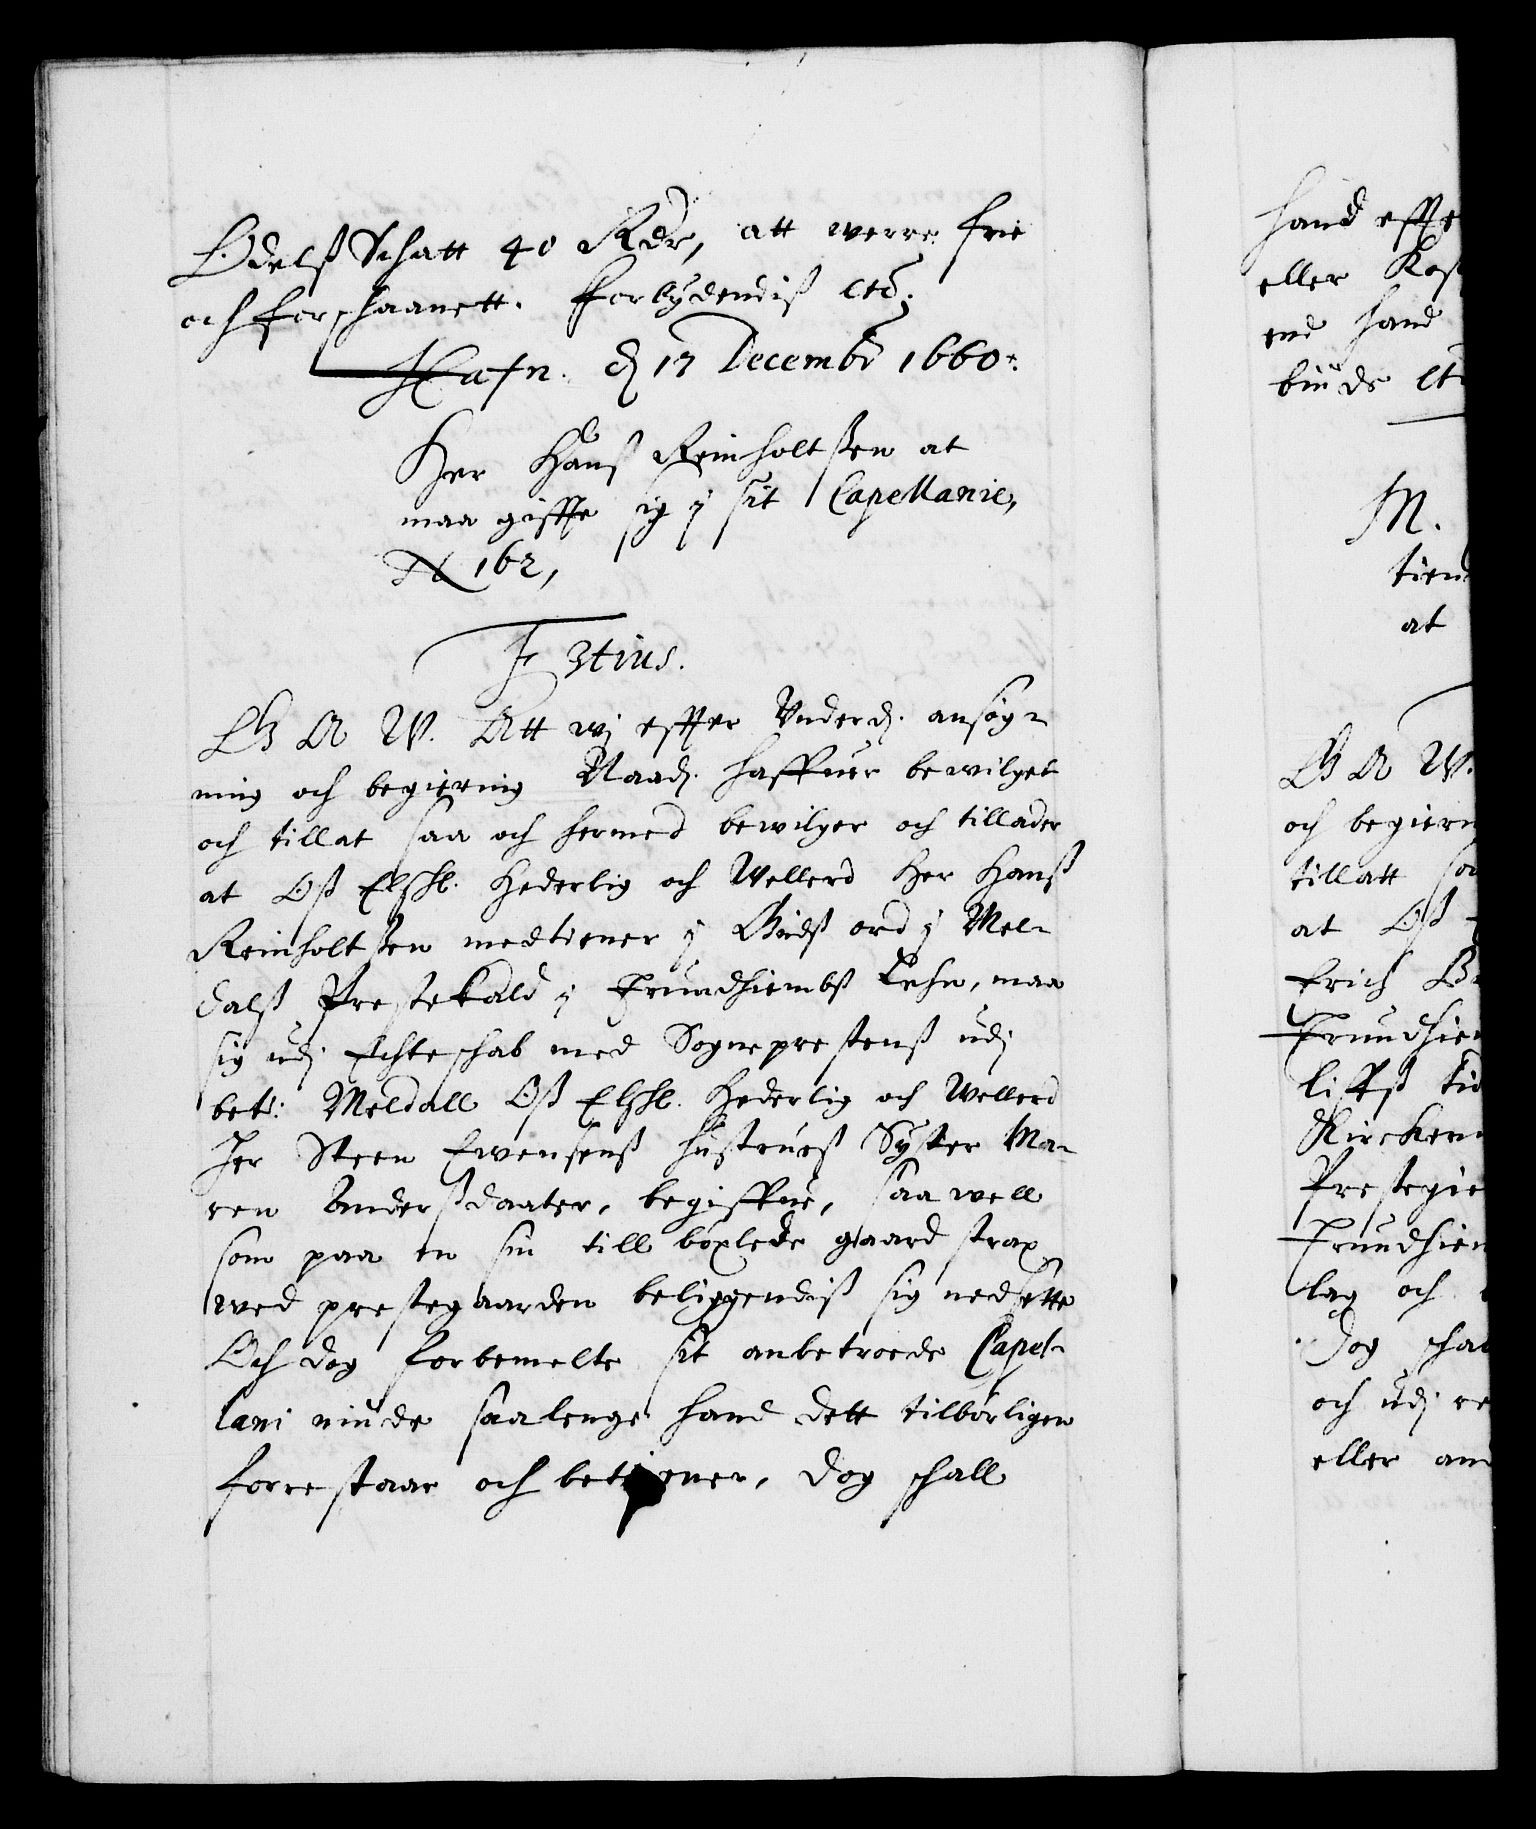 Odelß Schatt 40 Rdr, att werre frie
och forschaanett. Forbydendiß etc.
Hafn. d 17 Decembr 1660.
Her Hanß Reinholtßen at
maa giffte sig j sit Capellanie,
N 162,
F 3tius.
G A W. Att wj effter Underd. ansøg-
ning och begiering Naad. haffuer bewilget
och tillat saa och hermed bewilger och tillader
at Oß Elschl. Hederlig och Wellerd Her Hanß
Reinholtßen medtiener j Gudß ord j Mel-
dalß Prestekald j Trundhiembß Lehn, maa
sig udj Echteschab med Sogneprestenß udj
bete: Meldall Oß Elschl. Hederlig och Wellerd
Her Steen Ewensenß Hustrueß Syster Ma-
ren Anderßdaater, begiffue, saa well
som paa en sin till böxlede gaard strax
wed prestegaarden beliggendiß sig nedsette
Och dog forbemelte sit anbetroede Capel-
lani niude saalenge hand dett tilbørligen
forrestaar och betiener, dog schall
hand effte
eller Kost
end hand
binde etc
M.
tien
at
G A W.
och begiern
tillatt saa
at Oß
Erich Br
Trundhiem
liffß tid
Kircken
Prestegie
Trundhiem
lag och
Dog schal
och udj re
eller and